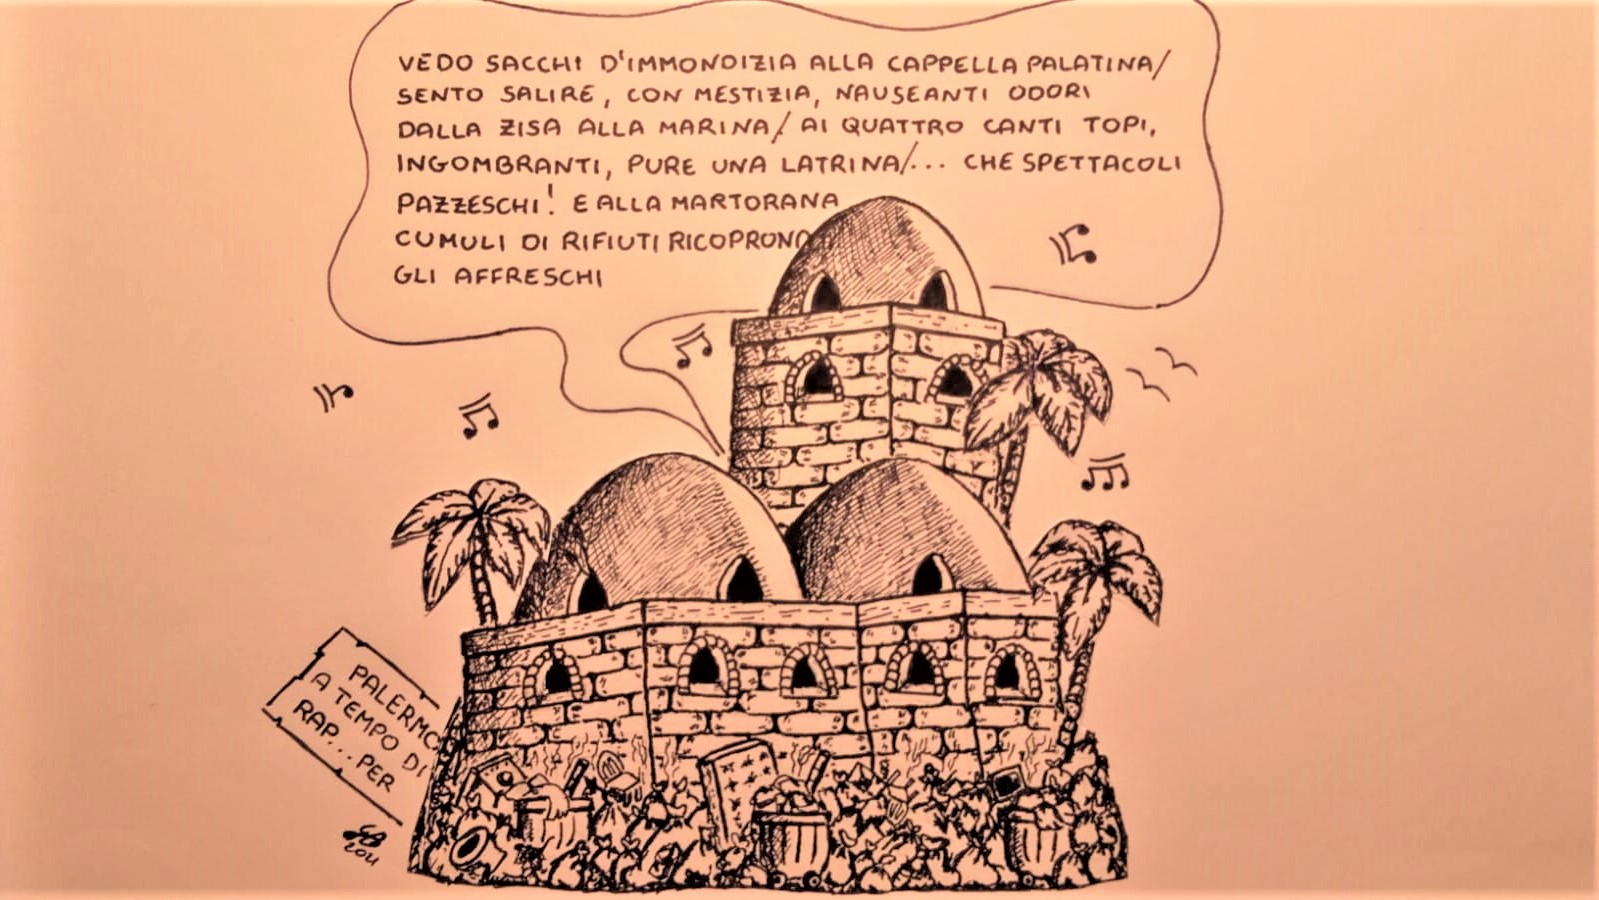 VEDO SACCHI D'IMMONDIZIA ALLA CAPPELLA PALATINA/
SENTO SALIRE, CON MESTIZIA, NAUSEANTI ODORI
DALLA ZISA ALLA MARINA/ AI QUATTRO CANTI TOPI,
INGOMBRANTI, PURE UNA LATRINA/... CHE SPETTACOLI
PAZZESCHI! E ALLA MARTORANA
CUMULI DI RIFIUTI RICOPRONO
GLI AFFRESCHI
PALERMO
A TEMPO DI
RAP...PER
2021